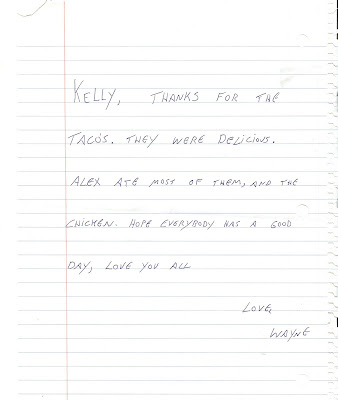 KELLY, THANKS FOR THE
TACO'S. THEY WERE DELICIOUS.
ALEX ATE MOST OF THEM, AND THE
CHICKEN. HOPE EVERYBODY HAS A GOOD
DAY, LOVE YOU ALL
LOVE,
WAYNE